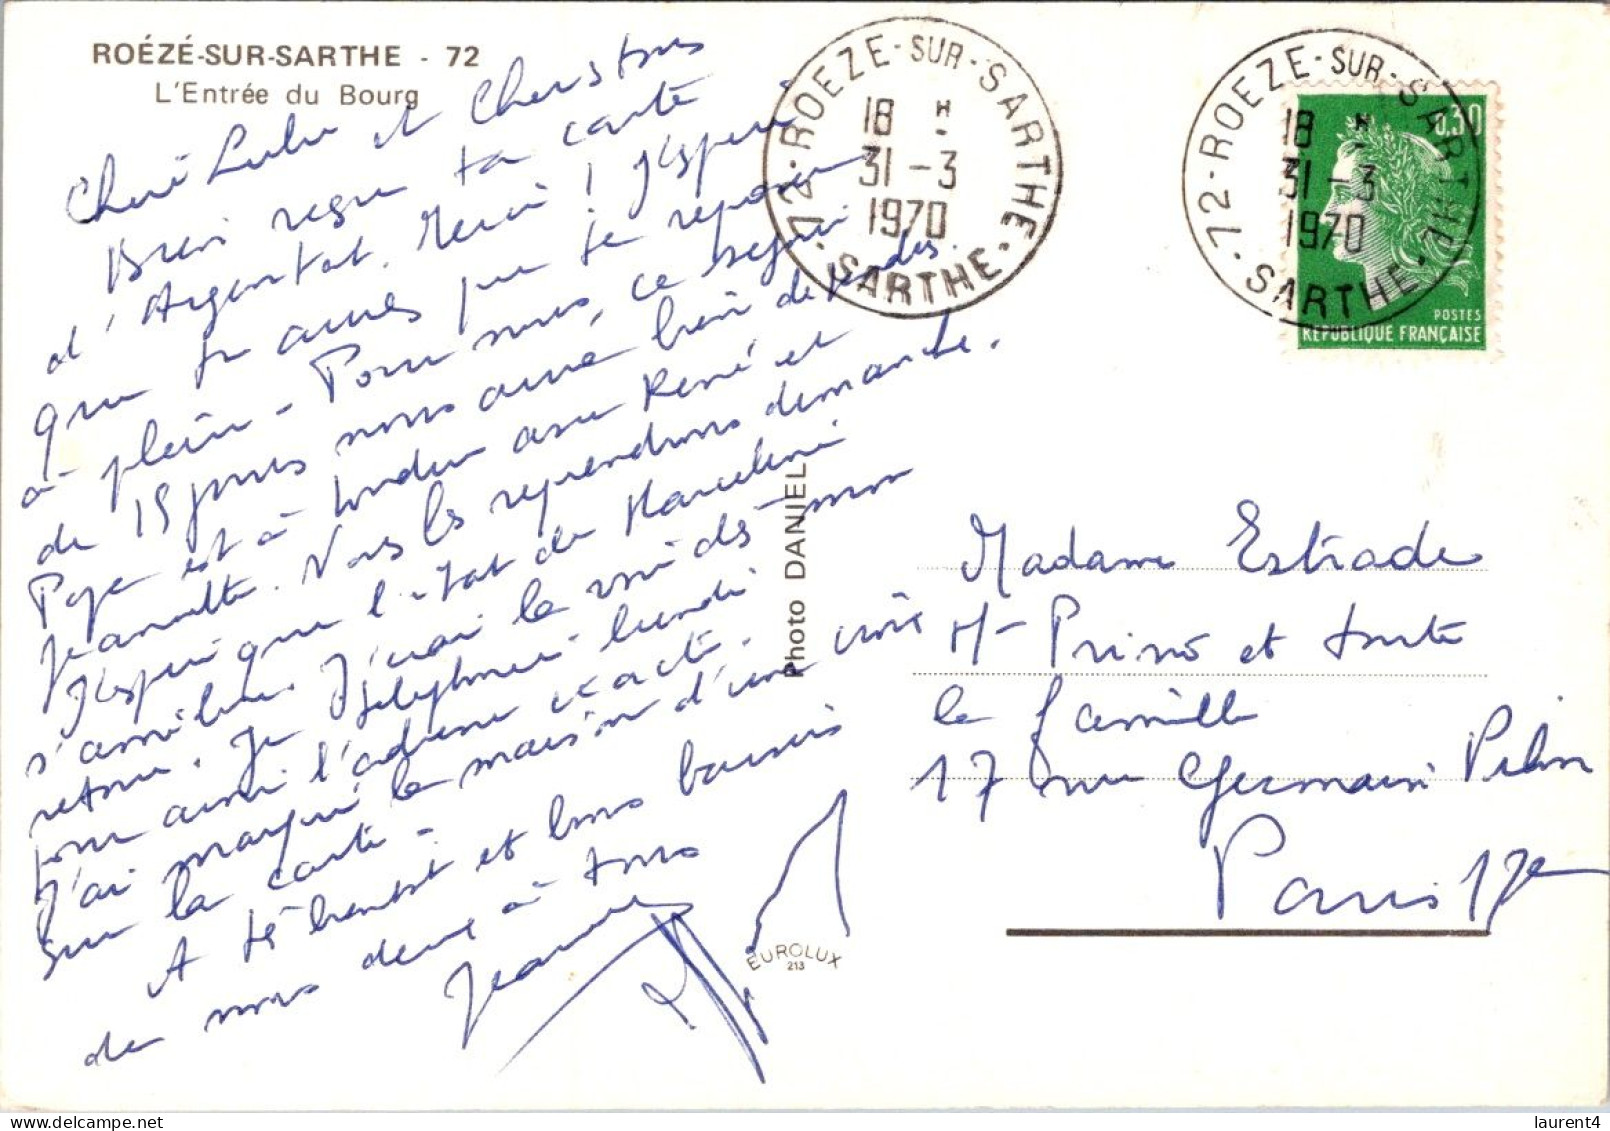 ROÉZÉ-SUR-SARTHE - 72
L'Entrée du Bourg
Cheri Lulu et Chers tous
Bien reçu ta carte
d'Argentat. Merci ! J'espère
que tu auras pu te reposer
à plein - Pour nous, ce séjour
de 15 jours nous aura bien détendus.
Pépé est à Loudun avec René et
Jeannette. Nous les reprendrons dimanche.
J'espère que l'état de Marceline
s'améliore. J'irai la voir dès mon
retour. Je téléphonerai lundi
pour avoir l'adresse exacte.
J'ai marqué la maison d'une croix
sur la carte -
A très bientôt et bons baisers
de nous deux à tous
Jeanne
72 - ROEZE - SUR - SARTHE - SARTHE
18 H
31 - 3
1970
72 - ROEZE - SUR - SARTHE - SARTHE
18 H
31 - 3
1970
0,30
POSTES
REPUBLIQUE FRANÇAISE
Photo DANIEL
Madame Estrade
Mr Prino et toute
la famille
17 rue Germain Pilon
Paris 17e
EUROLUX
213
laurent4